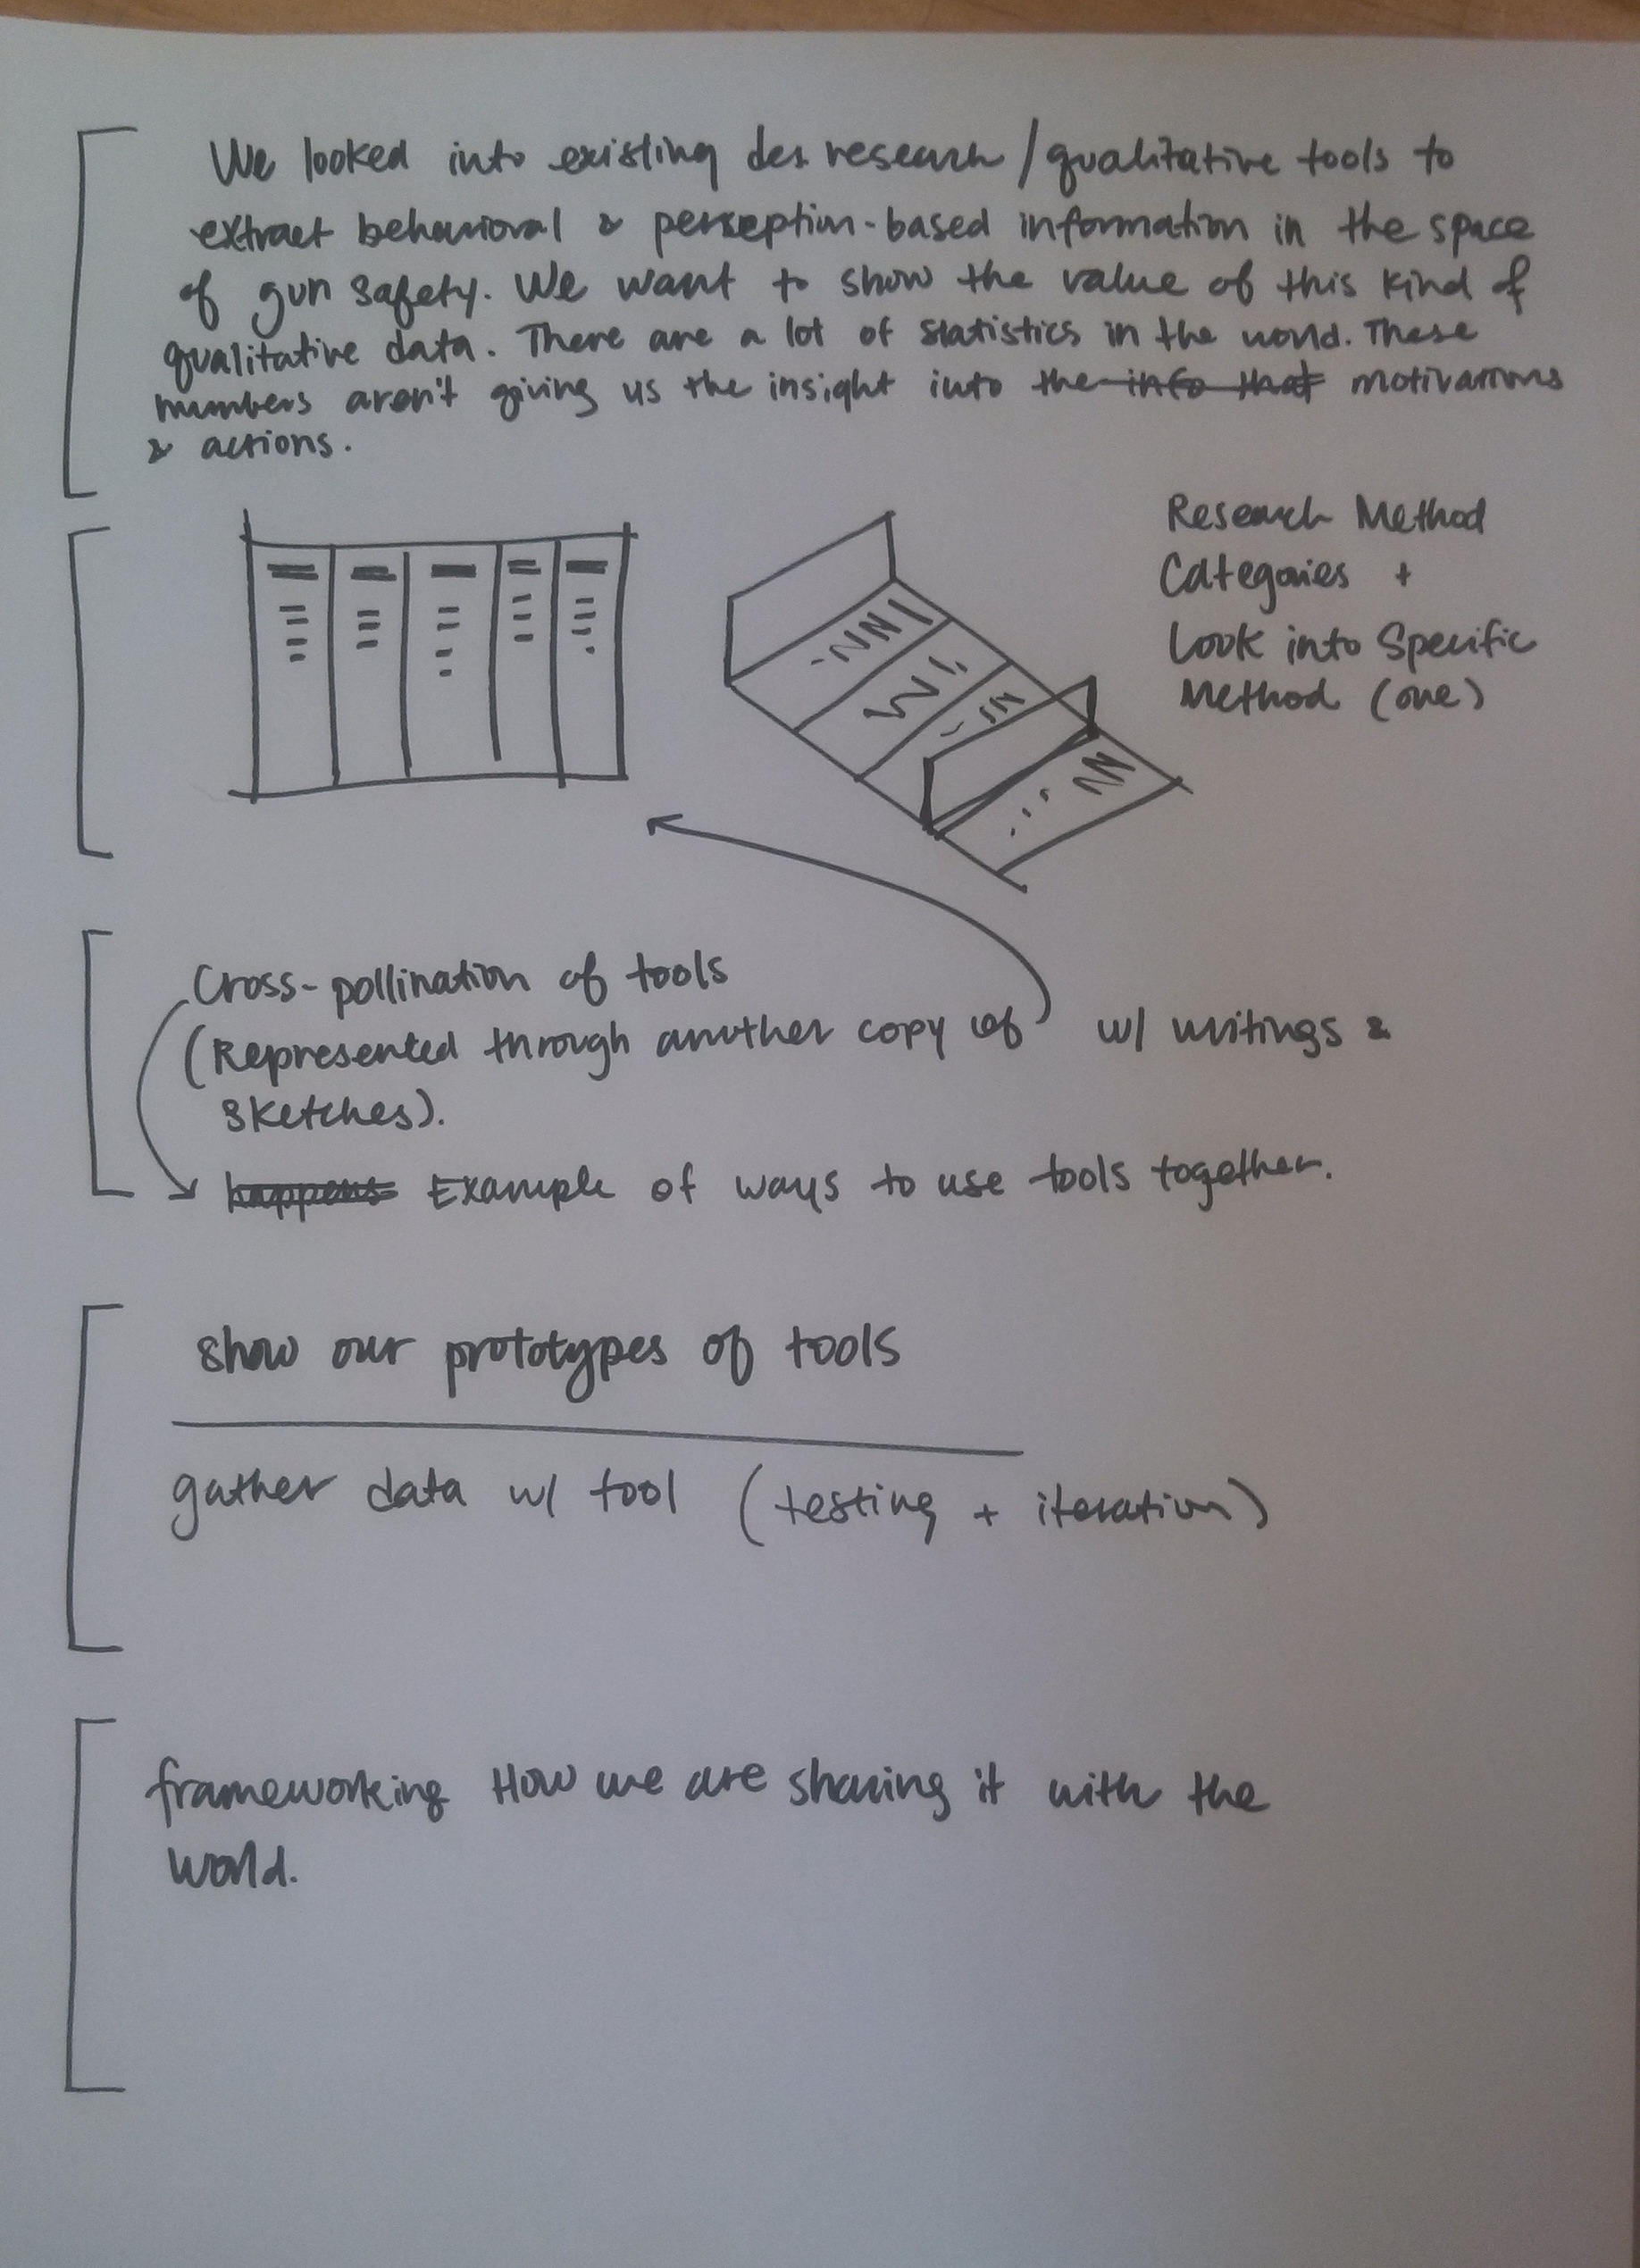 We looked into existing des. research / qualitative tools to
extract behavioral & perception-based information in the space
of gun safety. We want to show the value of this kind of
qualitative data. There are a lot of statistics in the world. These
numbers aren't giving us the insight into the info that motivations
& actions.
Research Method
Categories +
Look into Specific
Method (one)
Cross-pollination of tools
(Represented through another copy of w/ writings &
sketches).
happens Example of ways to use tools together.
show our prototypes of tools
gather data w/ tool (testing + iteration)
frameworking How we are sharing it with the
world.